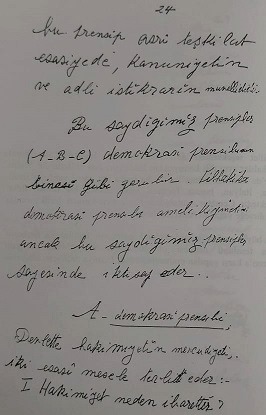 24
bu prensip asri teşkilat
esasiyede, kanuniyetin
ve adli istikrarın
Bu saydigimiz prensipler
(A-B-C) demokrasi prensibinin
binasi gibi gorulur.
demokrasi prensibi ameli
ancak bu saydigimiz prensipler
sayesinde iktisap eder..
A - demokrasi prensibi;
Devlette hakimiyetin
iki esasi mesele eder:-
I Hakimiyet neden ibarettir?